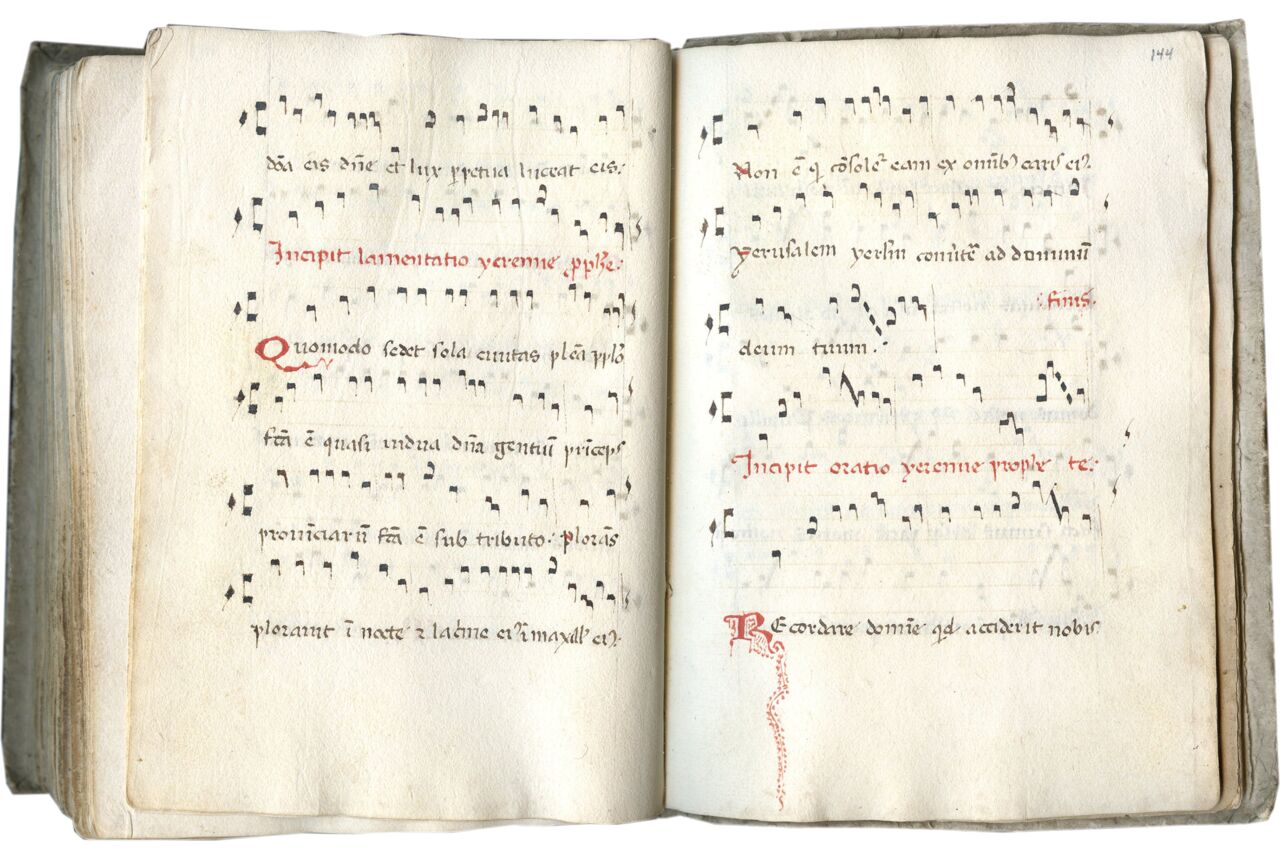 dõa eis dñe et lux ꝑpetua luceat eis.
Incipit lamentatio yeremie ꝓphe.
Quomodo sedet sola civitas plea pplo
fcã ẽ quasi vidua dña gentiũ prĩceps
provĩciarũ fcã ẽ sub tributo. plorãs
ploravit ĩ nocte ⁊ lacrime ei⁹ ĩ maxill' ei⁹.
144
Non ẽ q cõsolet eam ex omib⁹ caris ei⁹.
Yerusalem yerlm cõvertẽ ad dominum
: finis.
deum tuum.
Incipit oratio yeremie prophe te.
REcordare domine qd acciderit nobis